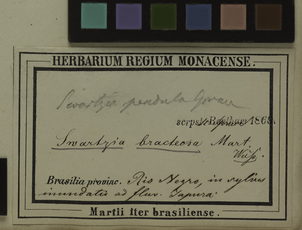 HERBARIUM REGIUM MONACENSE.
Swartzia pendula
scrips. 1869.
Swartzia bracteosa Mart.
Brasiliæ provinc. Rio Negro, in sylvis
inundatis ad fluv. Japurá.
Martii Iter brasiliense.